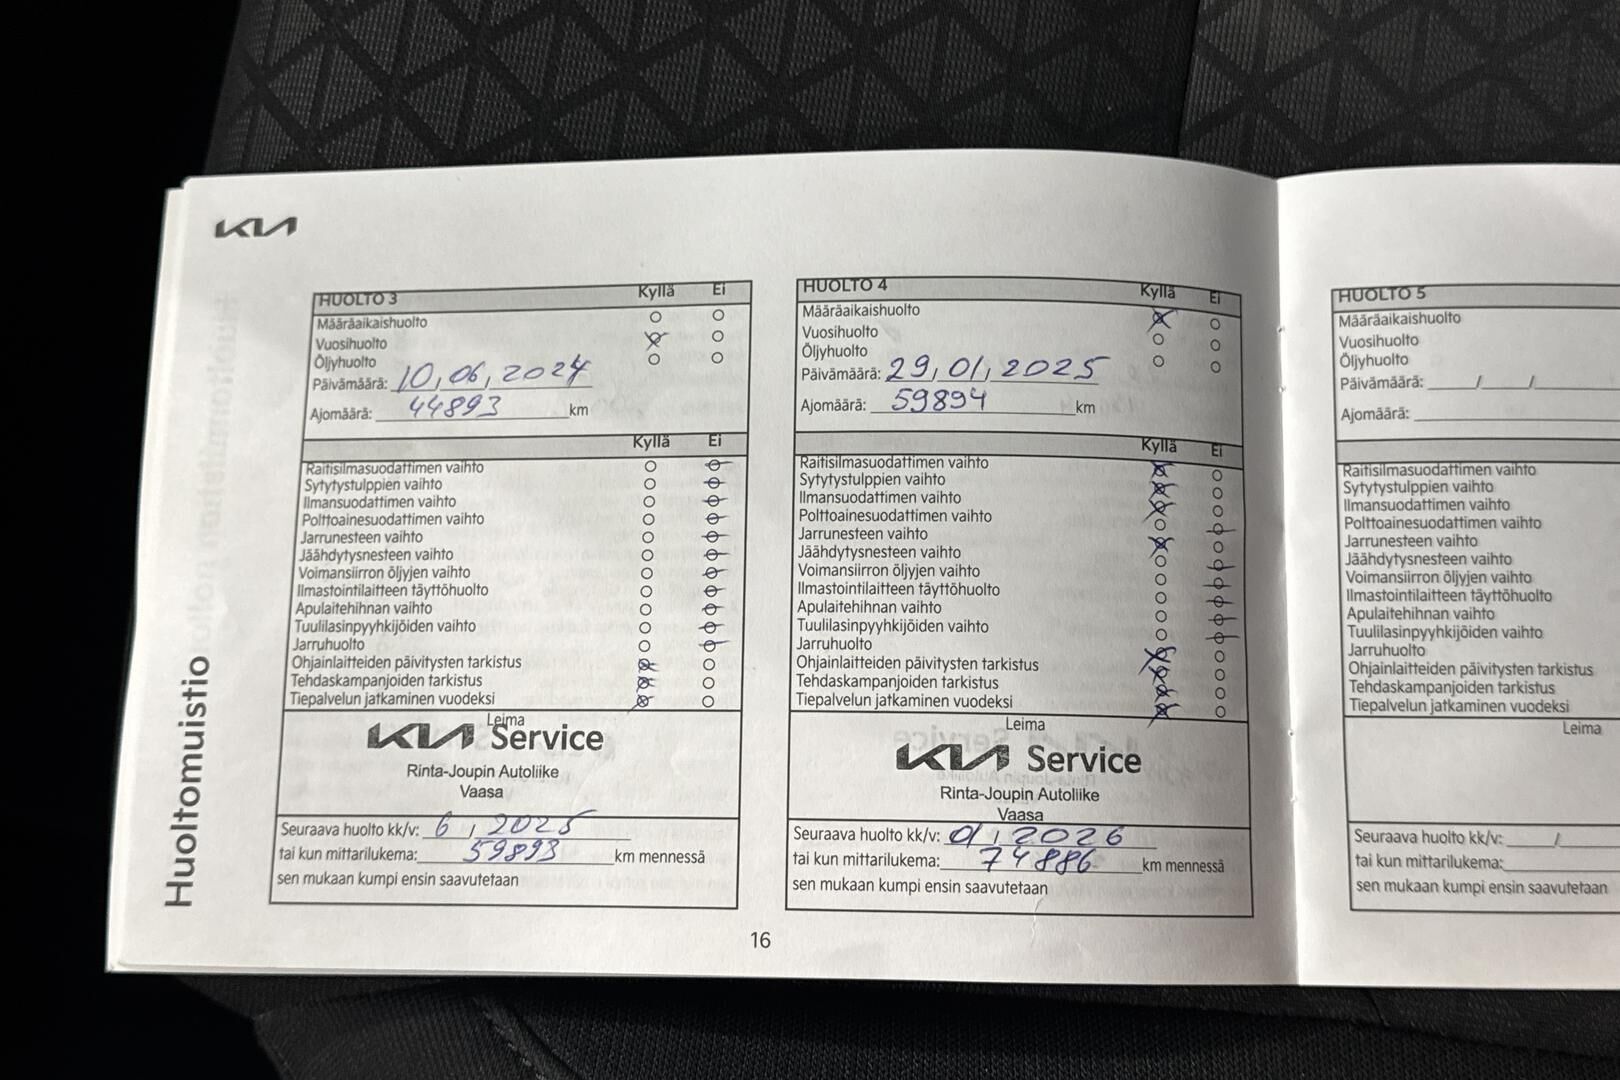 KIA
Huoltomuistio
HUOLTO 3 Kyllä Ei
Määräaikaishuolto
Vuosihuolto
Öljyhuolto
Päivämäärä: 10,06,2024
Ajomäärä: 44893 km
Kyllä Ei
Raitisilmasuodattimen vaihto
Sytytystulppien vaihto
Ilmansuodattimen vaihto
Polttoainesuodattimen vaihto
Jarrunesteen vaihto
Jäähdytysnesteen vaihto
Voimansiirron öljyjen vaihto
Ilmastointilaitteen täyttöhuolto
Apulaitehihnan vaihto
Tuulilasinpyyhkijöiden vaihto
Jarruhuolto
Ohjainlaitteiden päivitysten tarkistus
Tehdaskampanjoiden tarkistus
Tiepalvelun jatkaminen vuodeksi
Leima
KIA Service
Rinta-Joupin Autoliike
Vaasa
Seuraava huolto kk/v: 6 , 2025
tai kun mittarilukema: 59893 km mennessä
sen mukaan kumpi ensin saavutetaan
HUOLTO 4 Kyllä Ei
Määräaikaishuolto
Vuosihuolto
Öljyhuolto
Päivämäärä: 29,01,2025
Ajomäärä: 59894 km
Kyllä Ei
Raitisilmasuodattimen vaihto
Sytytystulppien vaihto
Ilmansuodattimen vaihto
Polttoainesuodattimen vaihto
Jarrunesteen vaihto
Jäähdytysnesteen vaihto
Voimansiirron öljyjen vaihto
Ilmastointilaitteen täyttöhuolto
Apulaitehihnan vaihto
Tuulilasinpyyhkijöiden vaihto
Jarruhuolto
Ohjainlaitteiden päivitysten tarkistus
Tehdaskampanjoiden tarkistus
Tiepalvelun jatkaminen vuodeksi
Leima
KIA Service
Rinta-Joupin Autoliike
Vaasa
Seuraava huolto kk/v: 01, 2026
tai kun mittarilukema: 74886 km mennessä
sen mukaan kumpi ensin saavutetaan
16
HUOLTO 5
Määräaikaishuolto
Vuosihuolto
Öljyhuolto
Päivämäärä: ____/____/____
Ajomäärä:
Raitisilmasuodattimen vaihto
Sytytystulppien vaihto
Ilmansuodattimen vaihto
Polttoainesuodattimen vaihto
Jarrunesteen vaihto
Jäähdytysnesteen vaihto
Voimansiirron öljyjen vaihto
Ilmastointilaitteen täyttöhuolto
Apulaitehihnan vaihto
Tuulilasinpyyhkijöiden vaihto
Jarruhuolto
Ohjainlaitteiden päivitysten tarkistus
Tehdaskampanjoiden tarkistus
Tiepalvelun jatkaminen vuodeksi
Leima
Seuraava huolto kk/v: ____/
tai kun mittarilukema:
sen mukaan kumpi ensin saavutetaan